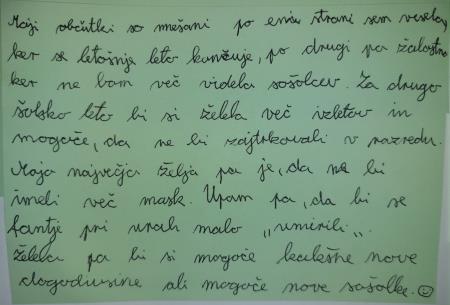 Moji občutki so mešani po eni strani sem vesela,
ker se letošnje leto končuje, po drugi pa žalostna
ker ne bom več videla sošolcev. Za drugo
šolsko leto bi si želela več izletov in
mogoče, da ne bi zajtrkovali v razredu.
Moja največja želja pa je, da ne bi
imeli več mask. Upam pa, da bi se
fantje pri urah malo "umirili".
Želela pa bi si mogoče kakšne nove
dogodivsine ali mogoče nove sošolke. ☺